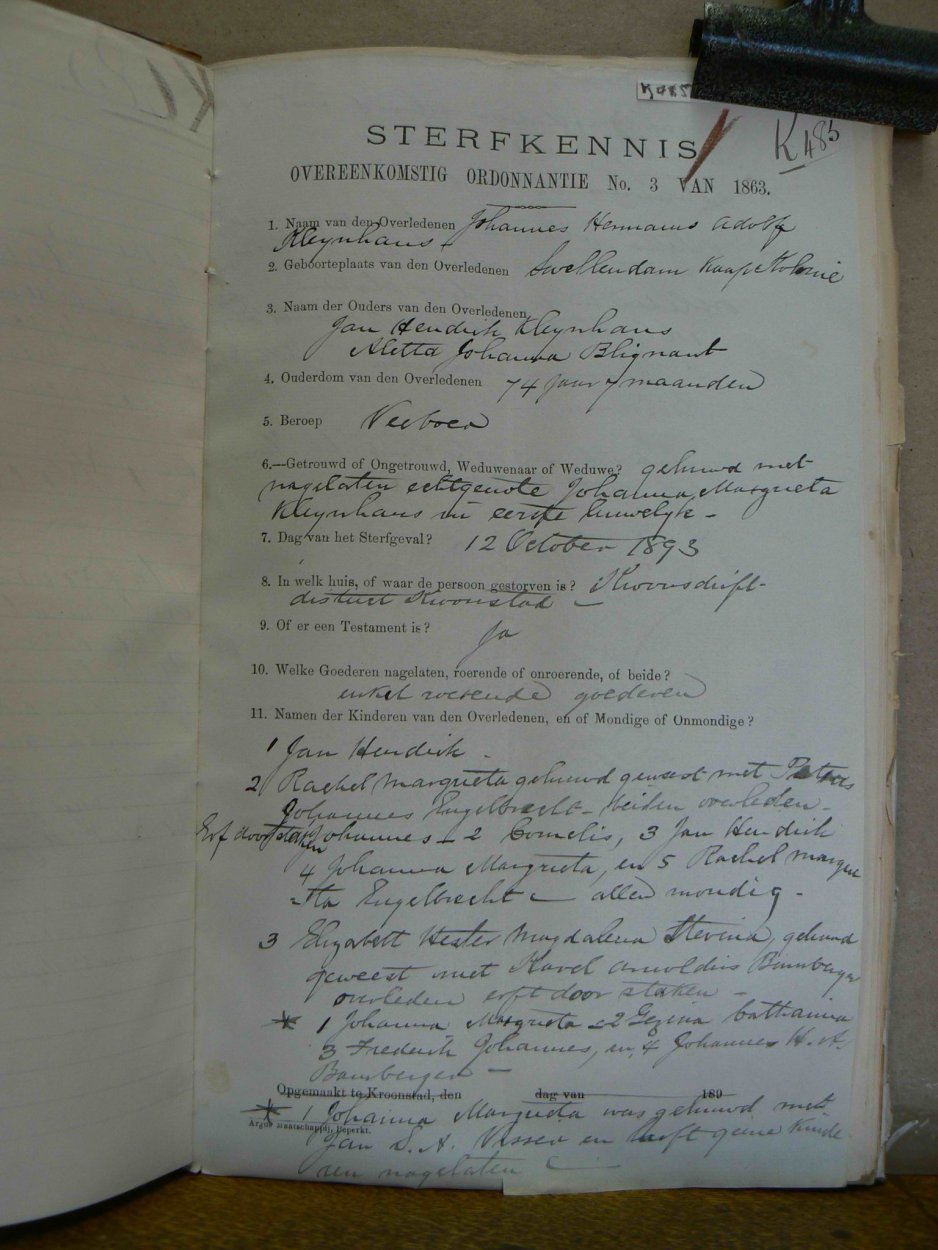 K485
K 485
STERFKENNIS
OVEREENKOMSTIG ORDONNANTIE No. 3 VAN 1863.
1. Naam van den Overledenen Johannes Hermanus Adolf
Kleynhans
2. Geboorteplaats van den Overledenen Swellendam Kaap Kolonie
3. Naam der Ouders van den Overledenen
Jan Hendrik Kleynhans
Aletta Johanna Blignaut
4. Ouderdom van den Overledenen 74 jaar 7 maanden
5. Beroep Veeboer
6.—Getrouwd of Ongetrouwd, Weduwenaar of Weduwe? gehuwd met
nagelaten echtgenote Johanna Margrieta
Kleynhans in eerste huwelyk -
7. Dag van het Sterfgeval? 12 October 1893
8. In welk huis, of waar de persoon gestorven is?
district Kroonstad -
9. Of er een Testament is? Ja
10. Welke Goederen nagelaten, roerende of onroerende, of beide?
enkel roerende goederen
11. Namen der Kinderen van den Overledenen, en of Mondige of Onmondige?
1 Jan Hendrik -
2 Rachel Margrieta gehuwd geweest met Petrus
Johannes Engelbrecht - beiden overleden -
Erf door staken Johannes - 2 Cornelis, 3 Jan Hendrik
4 Johanna Margrieta, en 5 Rachel Margrie
=ta Engelbrecht - allen mondig -
3 Elizabeth Hester Magdalena Stevina, gehuwd
geweest met Karel Arnoldus Bamberger
overleden erft door staken -
* 1 Johanna Margrieta 2 Gezina Catharina
3 Frederik Johannes, en 4 Johannes H. A.
Bamberger -
Opgemaakt te Kroonstad, den dag van 189
* 1 Johanna Margrieta was gehuwd met
Argus Maatschappij, Beperkt.
Jan L. A. Visser en heeft geene kinde-
ren nagelaten